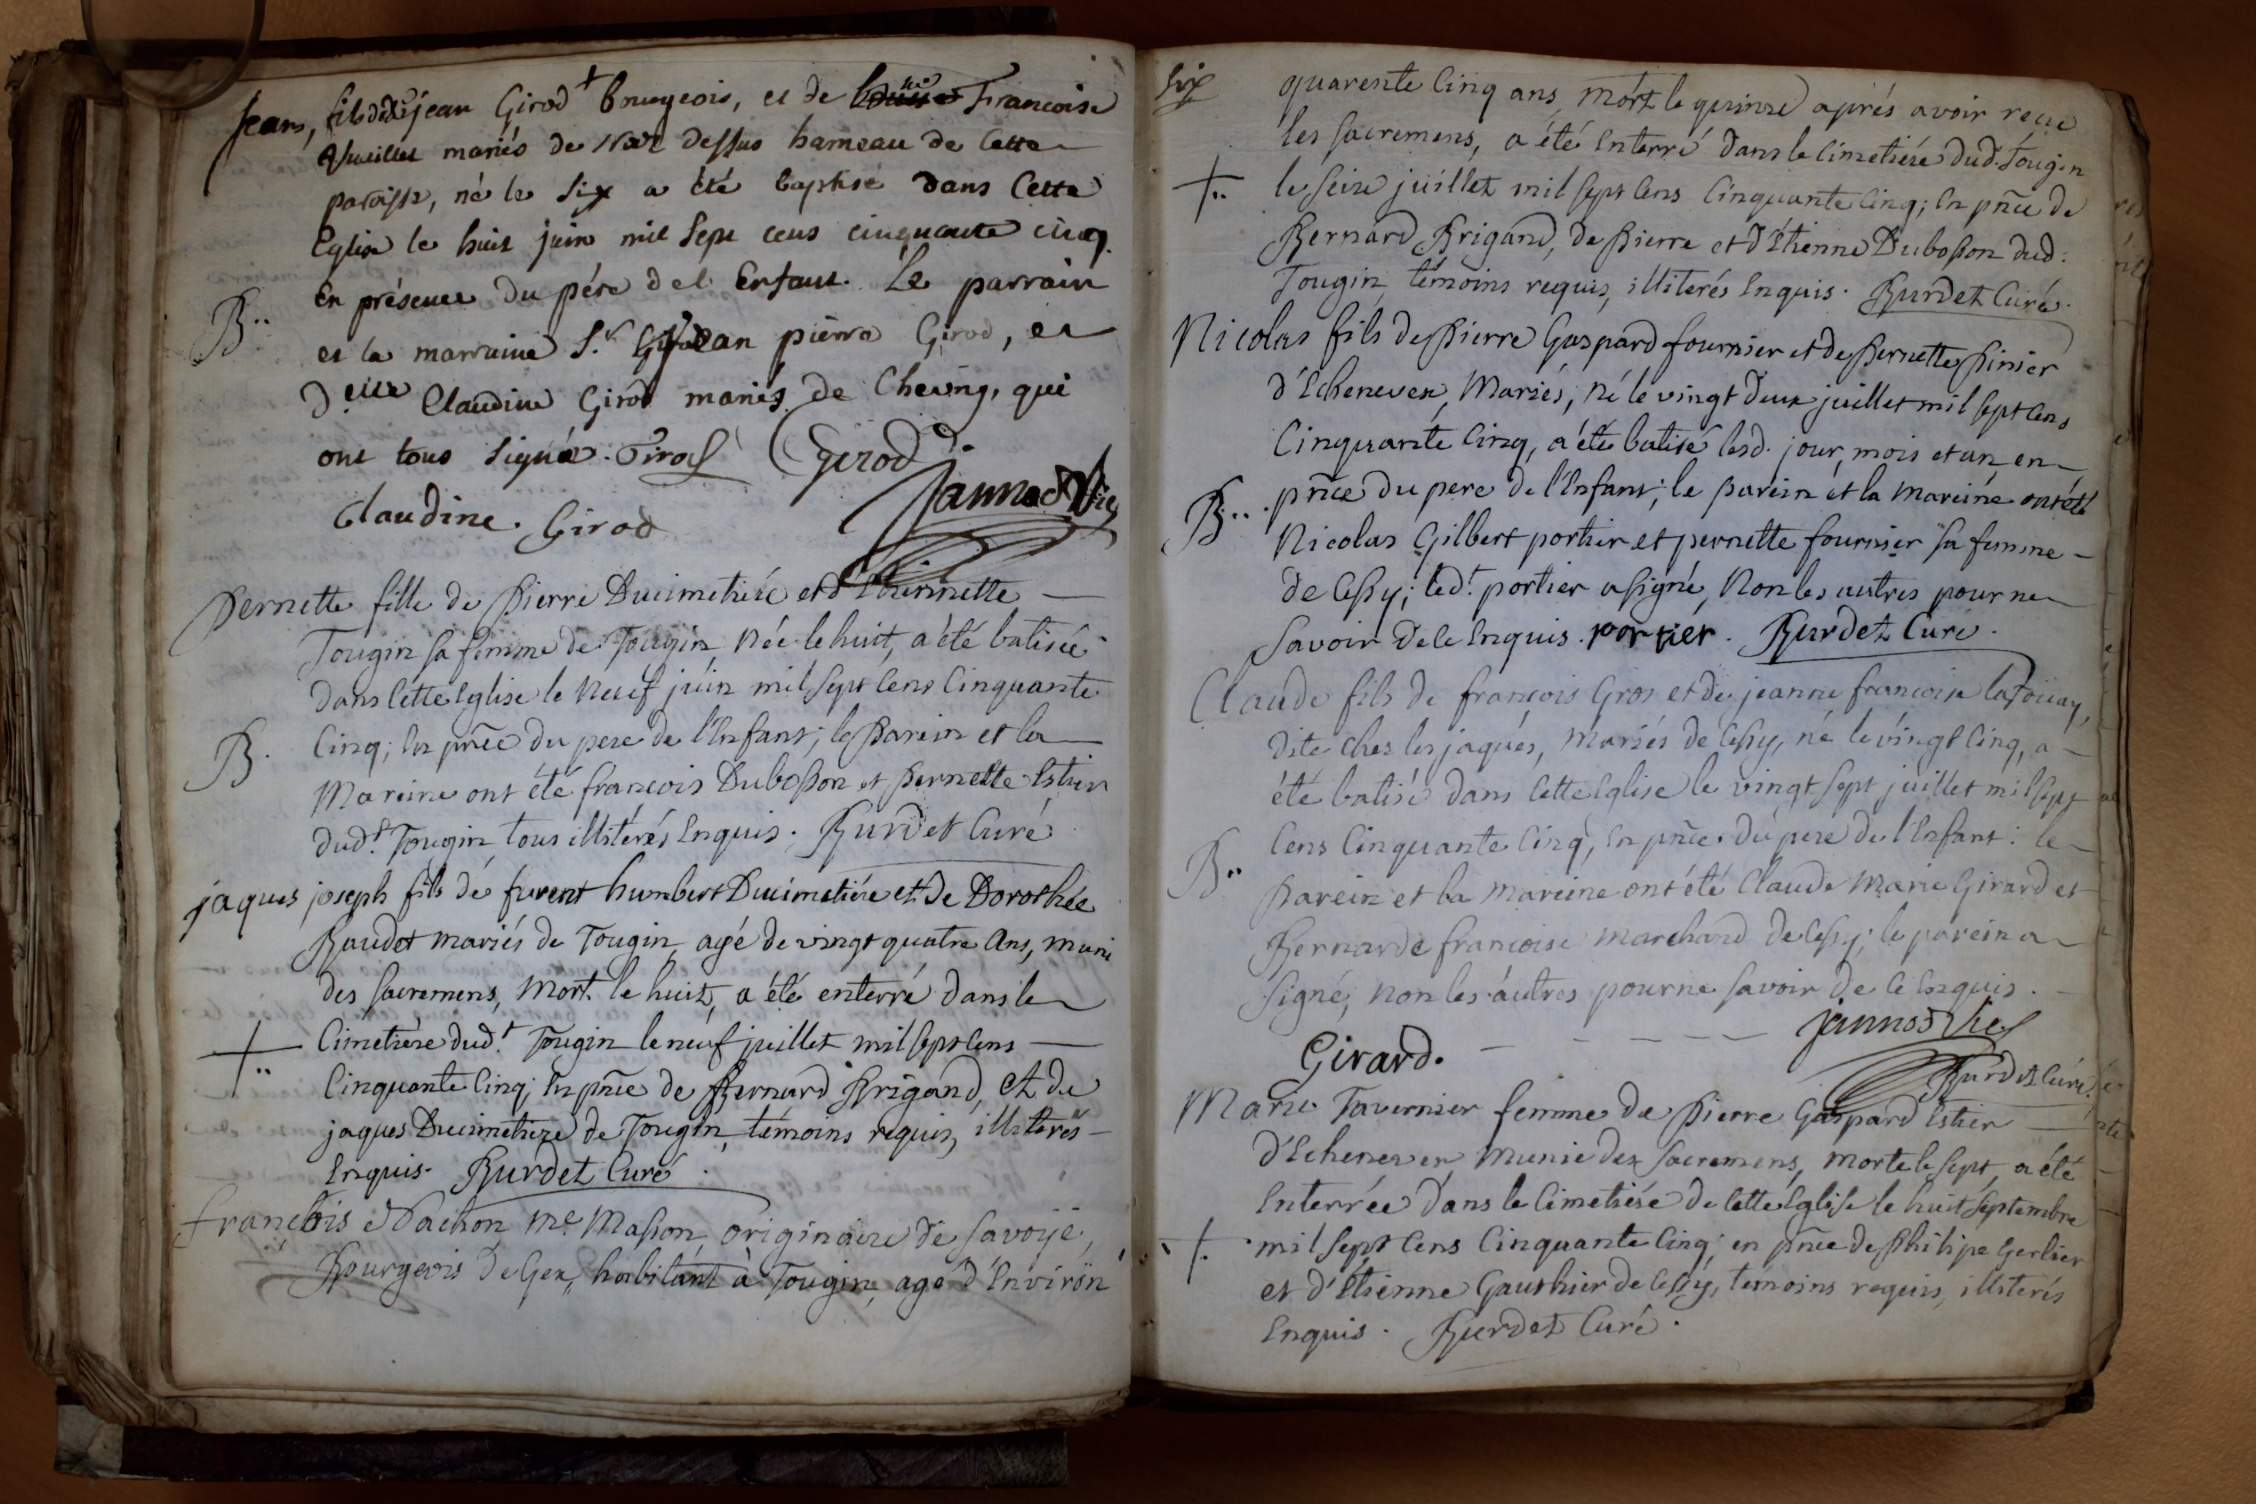 Jean, fils de jean Girod + bourgeois, et de Francoise
mariés de dessus hameau de cette
paroisse, né le six a été baptisé dans cette
Eglise le huit juin mil sept cens cinquante cinq.
En présence du pére de l'Enfant. Le parrain
B..
et la marraine S.r jean pierre Girod, et
D.elle Claudine Girod mariés de Cheving, qui
ont tous signés. Girod Girod
Claudine. Girod Jannod Vic
Pernette fille de Pierre Ducimetiére et d'Etiennette
Tougin sa femme de Tougin, Née le huit, a été batisée
dans cette Eglise le Neuf juin mil sept cens Cinquante
B.
Cinq; En pñce du pere de l'Enfant; le Parein et la
Mareine ont été francois Dubosson et Pernette Estier
dud.t Tougin, tous illiterés Enquis. Burdet Curé
jaques joseph fils de furent humbert Ducimetiére et de Dorothée
Baudet mariés de Tougin, agé de vingt quatre ans, muni
des sacremens, Mort le huit, a été enterré dans le
+..
Cimetière dud.t Tougin le neuf juillet mil sept Cens
Cinquante Cinq; En pñce de Bernard Brigand, et de
jaques Ducimetiere de Tougin, témoins requis, illiterés
Enquis. Burdet Curé.
françois Nachon m.e Masson, originaire de Savoÿe,
Bourgeois de Gex, habitant à Tougin, agé d'Environ
six
quarente Cinq ans, Mort le quinze aprés avoir recu
les sacremens, a été Enterré dans le Cimetiére dud. Tougin
+..
le seize juillet mil sept Cens Cinquante Cinq; En pñce de
Bernard Brigand, de Pierre et d'Etienne Dubosson dud:
Tougin, témoins requis, illiterés Enquis. Burdet Curé.
Nicolas fils de Pierre Gaspard fournier et de Pernette Pinier
d'Echenevex, Mariés, né le vingt Deux juillet mil sept Cens
Cinquante Cinq, a été batisé lesd. jour, mois et an, en
B..
pñce du pere de l'Enfant; le parein et la mareine ont été
Nicolas Gilbert portier et pernette fournier sa femme
de Cessy; led.t portier a signé, Non les autres pour ne
savoir de le Enquis. portier. Burdet Curé.
Claude fils de françois Gros et de jeanne francoise
dite chez les jaques, Mariés de Cessy, né le vingt Cinq, a
été batisé dans cette Eglise le vingt sept juillet mil sept
B..
Cens Cinquante Cinq, En pñce du pere de l'Enfant: le
Parein et la Mareine ont été Claude Marie Girard et
Bernarde francoise Marchand de Cessy; le parein a
signé, Non les autres pour ne savoir de le Enquis.
Girard. Jannod Vic
Burdet Curé.
Marie Tavernier femme de Pierre Gaspard Estier
d'Echenevex, Munie des sacremens, Morte le sept, a été
Enterrée dans le Cimetiére de cette Eglise le huit septembre
+.
mil sept Cens Cinquante Cinq; en pñce de Philipe Gerlier
et d'Etienne Gauthier de Cessy, temoins requis, illiterés
Enquis. Burdet Curé.